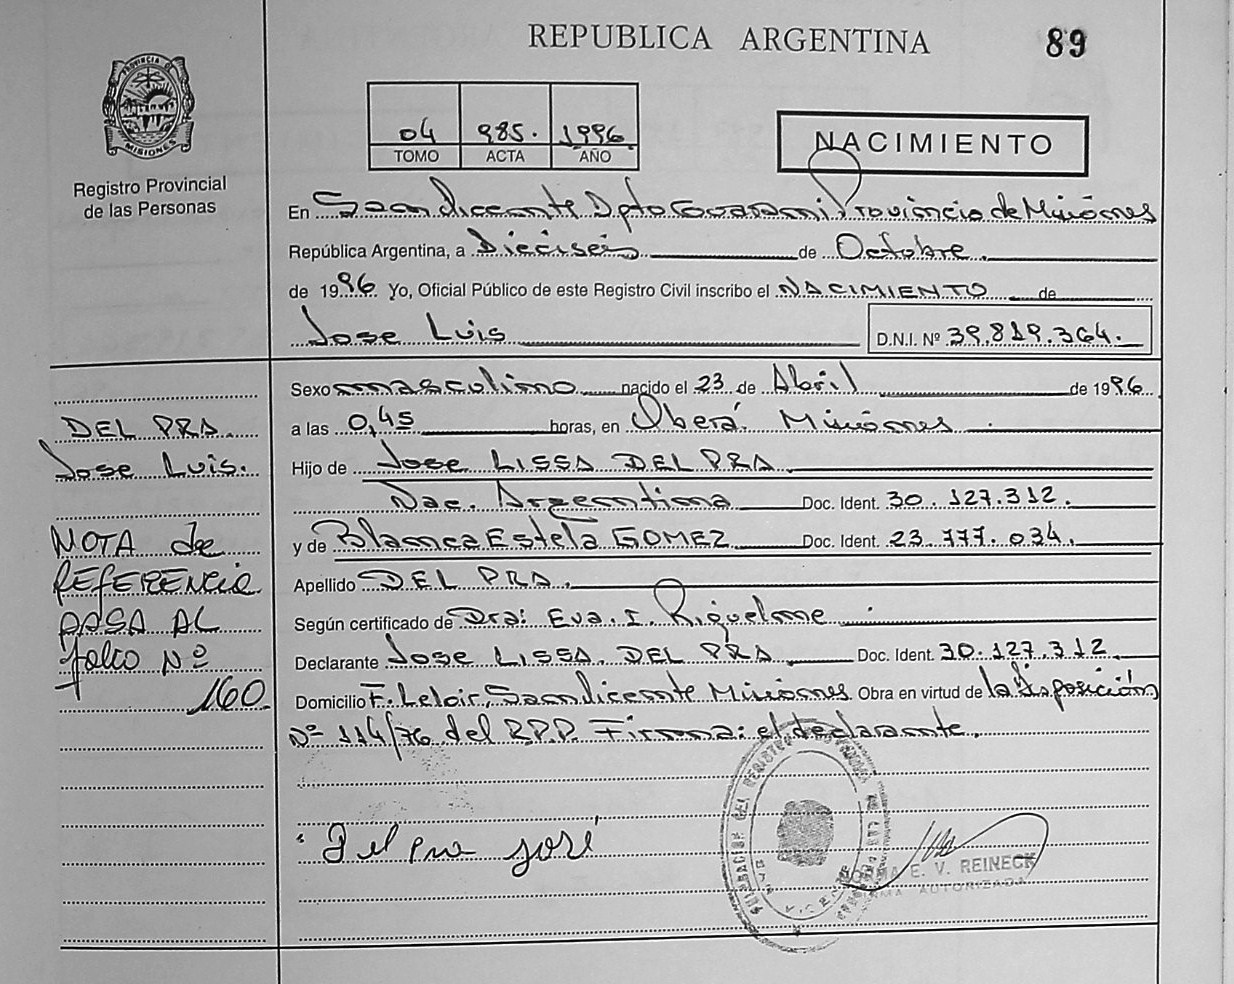 REPUBLICA ARGENTINA
89
PROVINCIA DE MISIONES
Registro Provincial
de las Personas
04 985. 1996
TOMO ACTA AÑO
NACIMIENTO
En San Vicente Dpto Guarani Provincia de Misiones
República Argentina, a Dieciseis de Octubre.
de 1996 Yo, Oficial Público de este Registro Civil inscribo el NACIMIENTO de
Jose Luis D.N.I. Nº 39.819.364.
Sexo masculino nacido el 23 de Abril de 1996
a las 0,45 horas, en Oberá. Misiones.
Hijo de Jose LISSA DEL PRA
Nac. Argentina Doc. Ident. 30.127.312.
y de Blanca Estela GOMEZ Doc. Ident. 23.777.034.
Apellido DEL PRA.
Según certificado de Dra: Eva. I. Riquelme.
Declarante Jose LISSA. DEL PRA Doc. Ident. 30.127.312
Domicilio F. Leloir, San Vicente Misiones. Obra en virtud de la Disposición
Nº 114/76 del R.P.P. Firma: el declarante.
DEL PRA.
Jose Luis.
NOTA de
REFERENCIA
PASA AL
folio Nº
160.
Del Pra José
NORMA E. V. REINECK
FIRMA AUTORIZADA